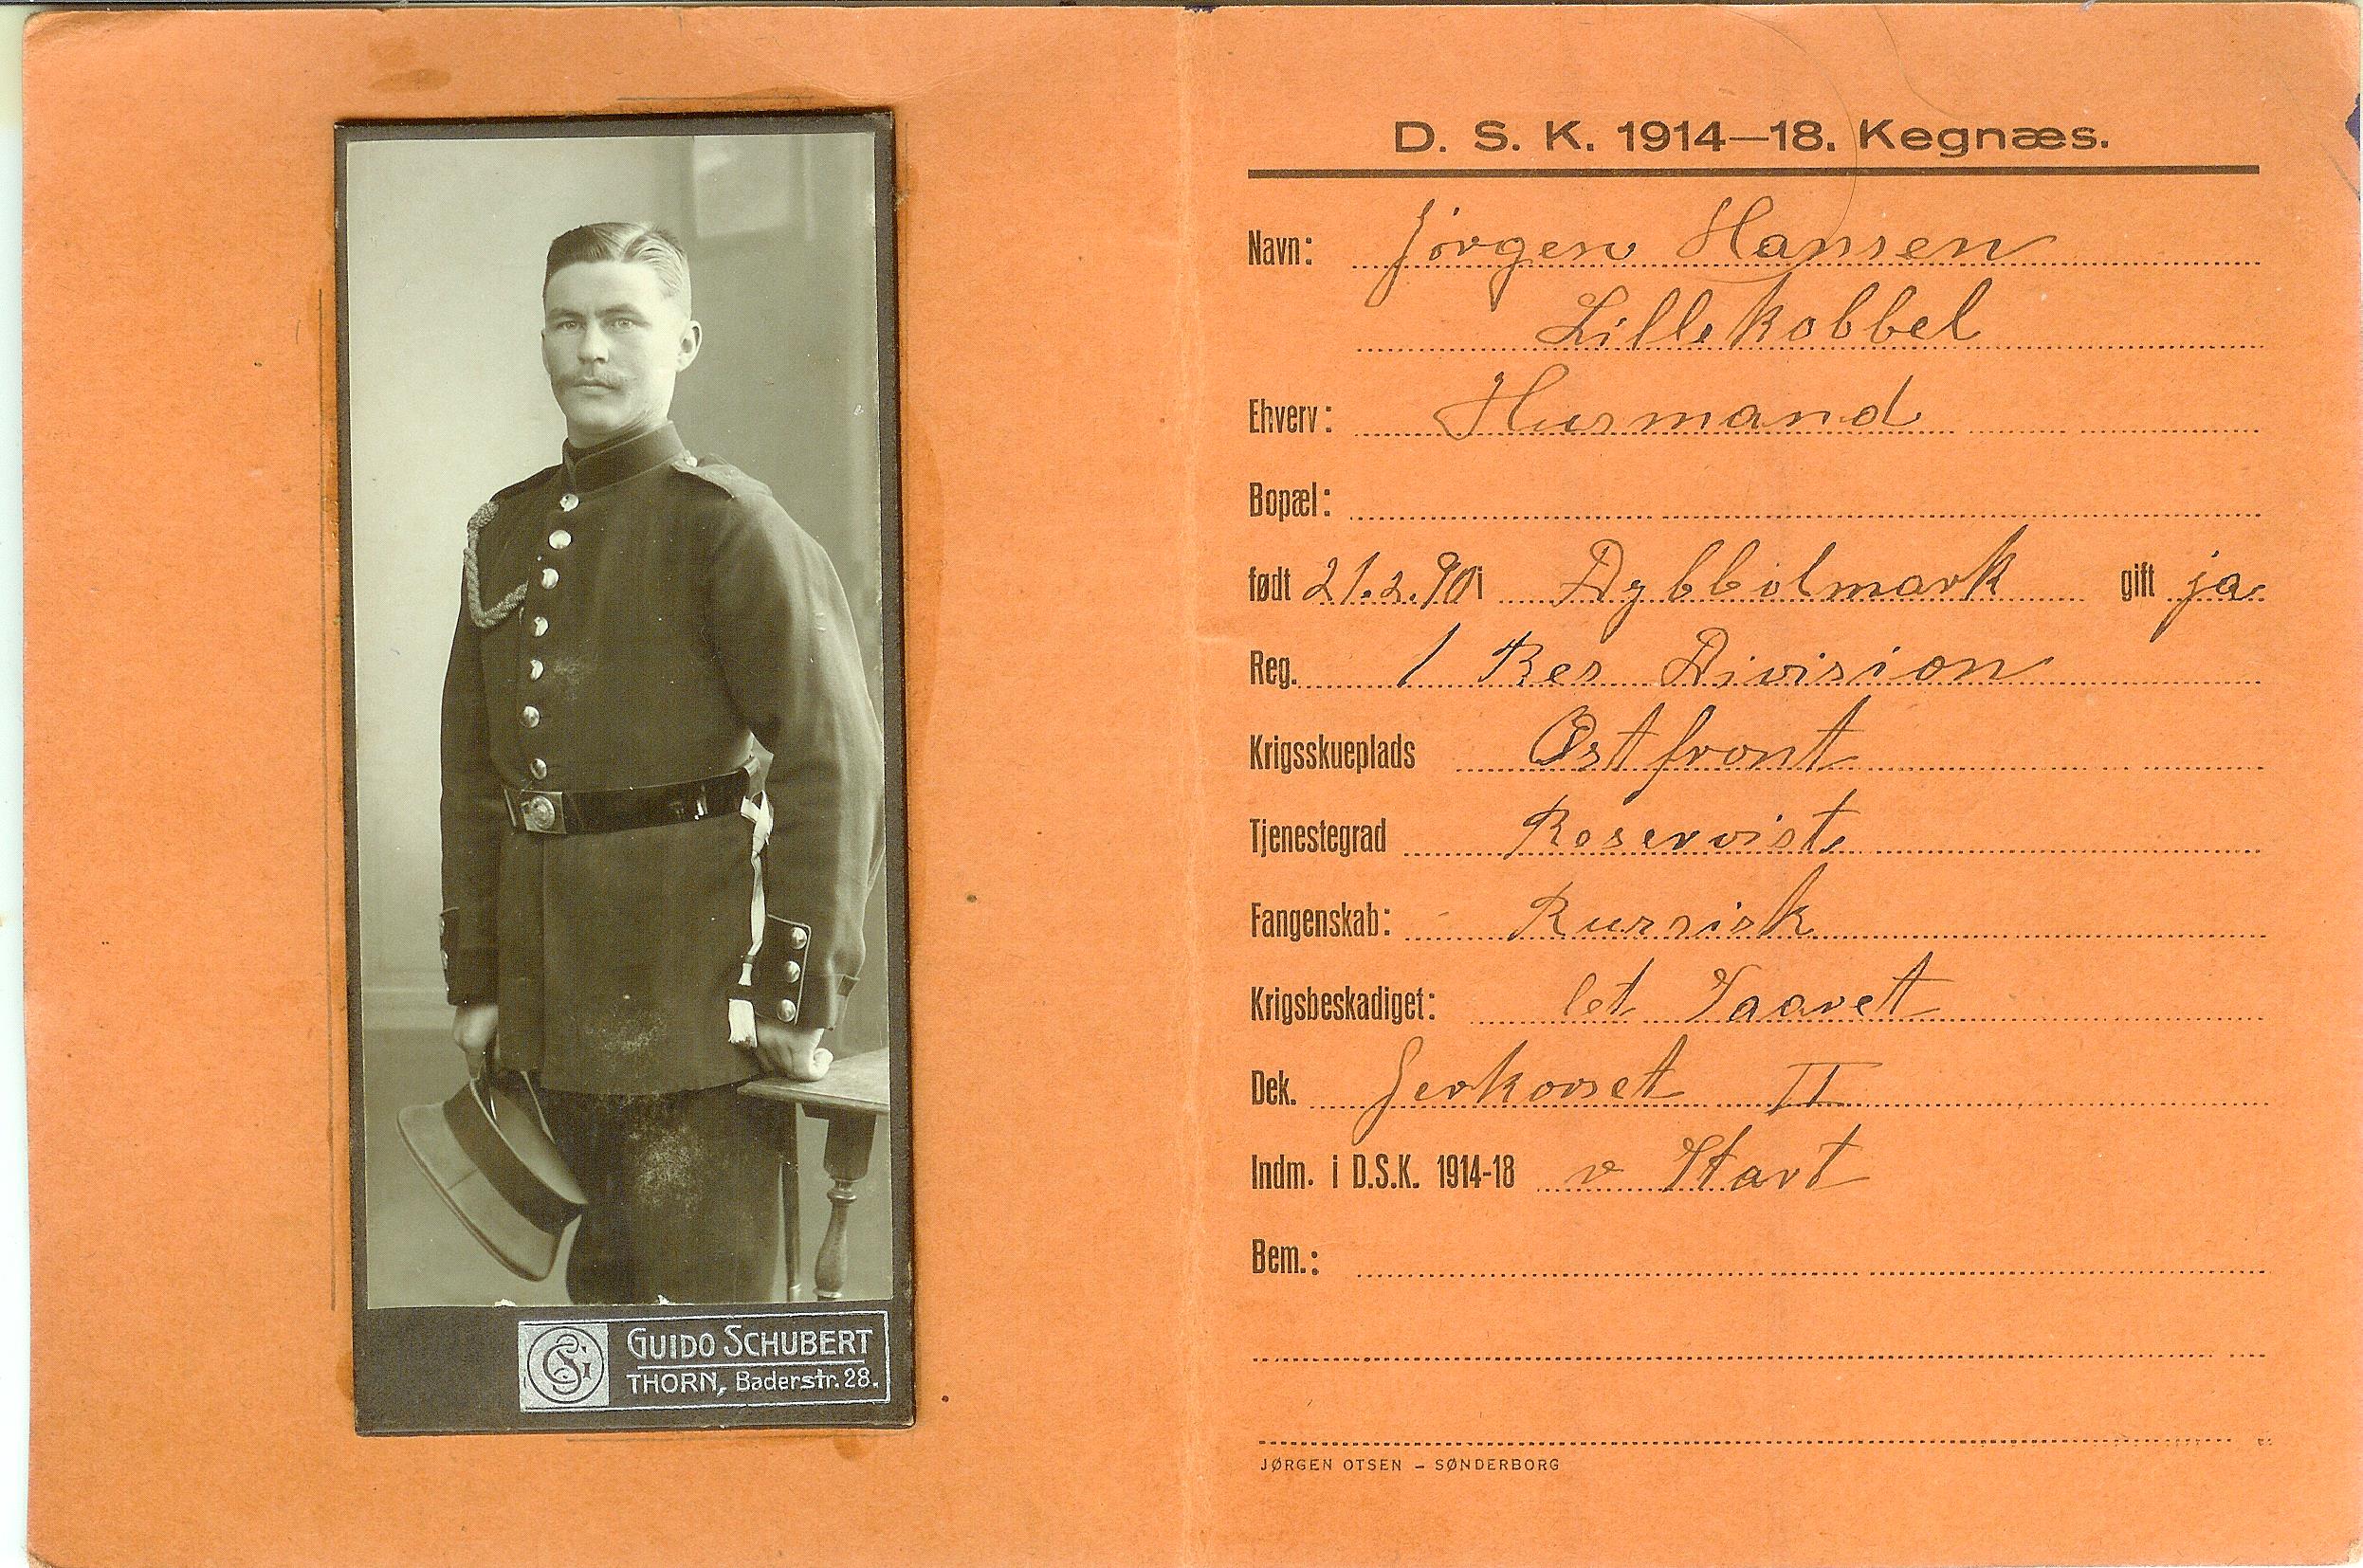 GS
GUIDO SCHUBERT
THORN, Baderstr. 28.
D. S. K. 1914—18. Kegnæs.
Navn: Jørgen Hansen
Lillekobbel
Ehverv: Husmand
Bopæl:
født 21.2.90 i Dybbølmark gift ja
Reg. 1 Res Division
Krigsskueplads Østfront
Tjenestegrad Reservist
Fangenskab: Russisk
Krigsbeskadiget: let Saaret
Dek. Jerkorset II
Indm. i D.S.K. 1914-18 v Start
Bem.:
JØRGEN OTSEN – SØNDERBORG